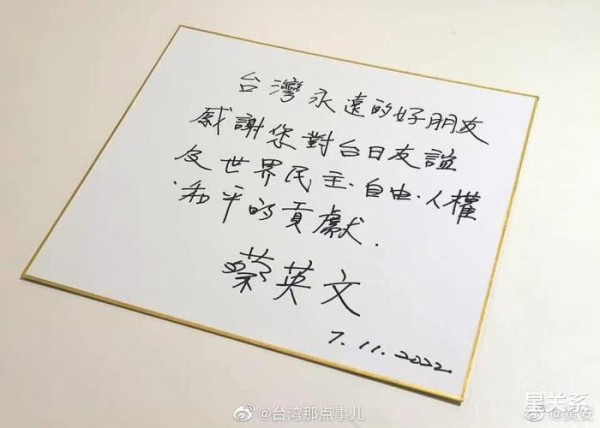 台灣永遠的好朋友
感謝您對台日友誼
及世界民主、自由、人權
、和平的貢獻.
蔡英文
7.11.2022
@台湾那点事儿
星关系
@黄安